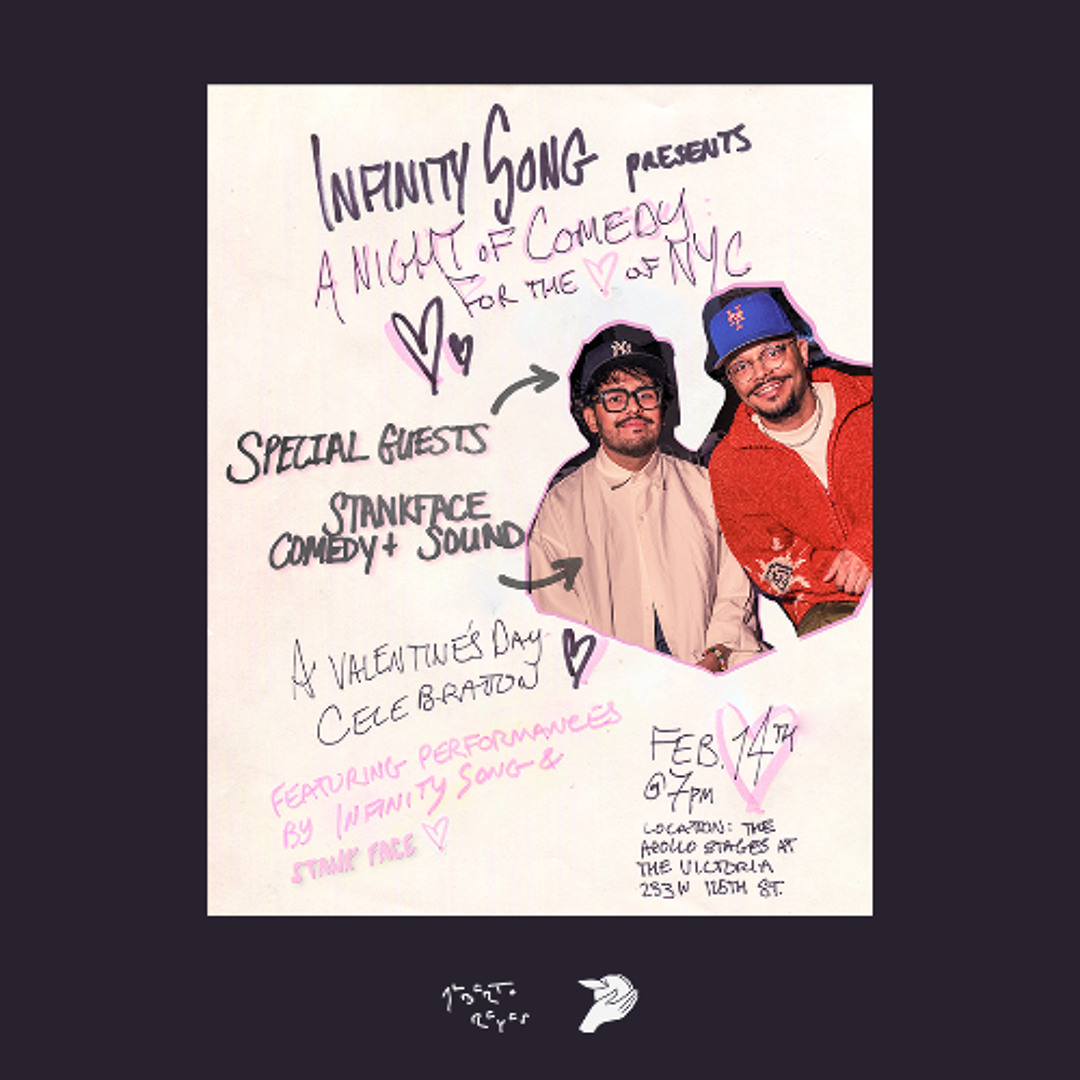 INFINITY SONG PRESENTS
A NIGHT OF COMEDY:
FOR THE ♡ OF NYC
NY
NY
SPECIAL GUESTS
STANKFACE
COMEDY + SOUND
A VALENTINE'S DAY
CELEBRATION
FEATURING PERFORMANCES
BY INFINITY SONG &
STANK FACE ♡
FEB. 14TH
@7PM
LOCATION: THE
APOLLO STAGES AT
THE VICTORIA
233 W 125TH ST.
REYES